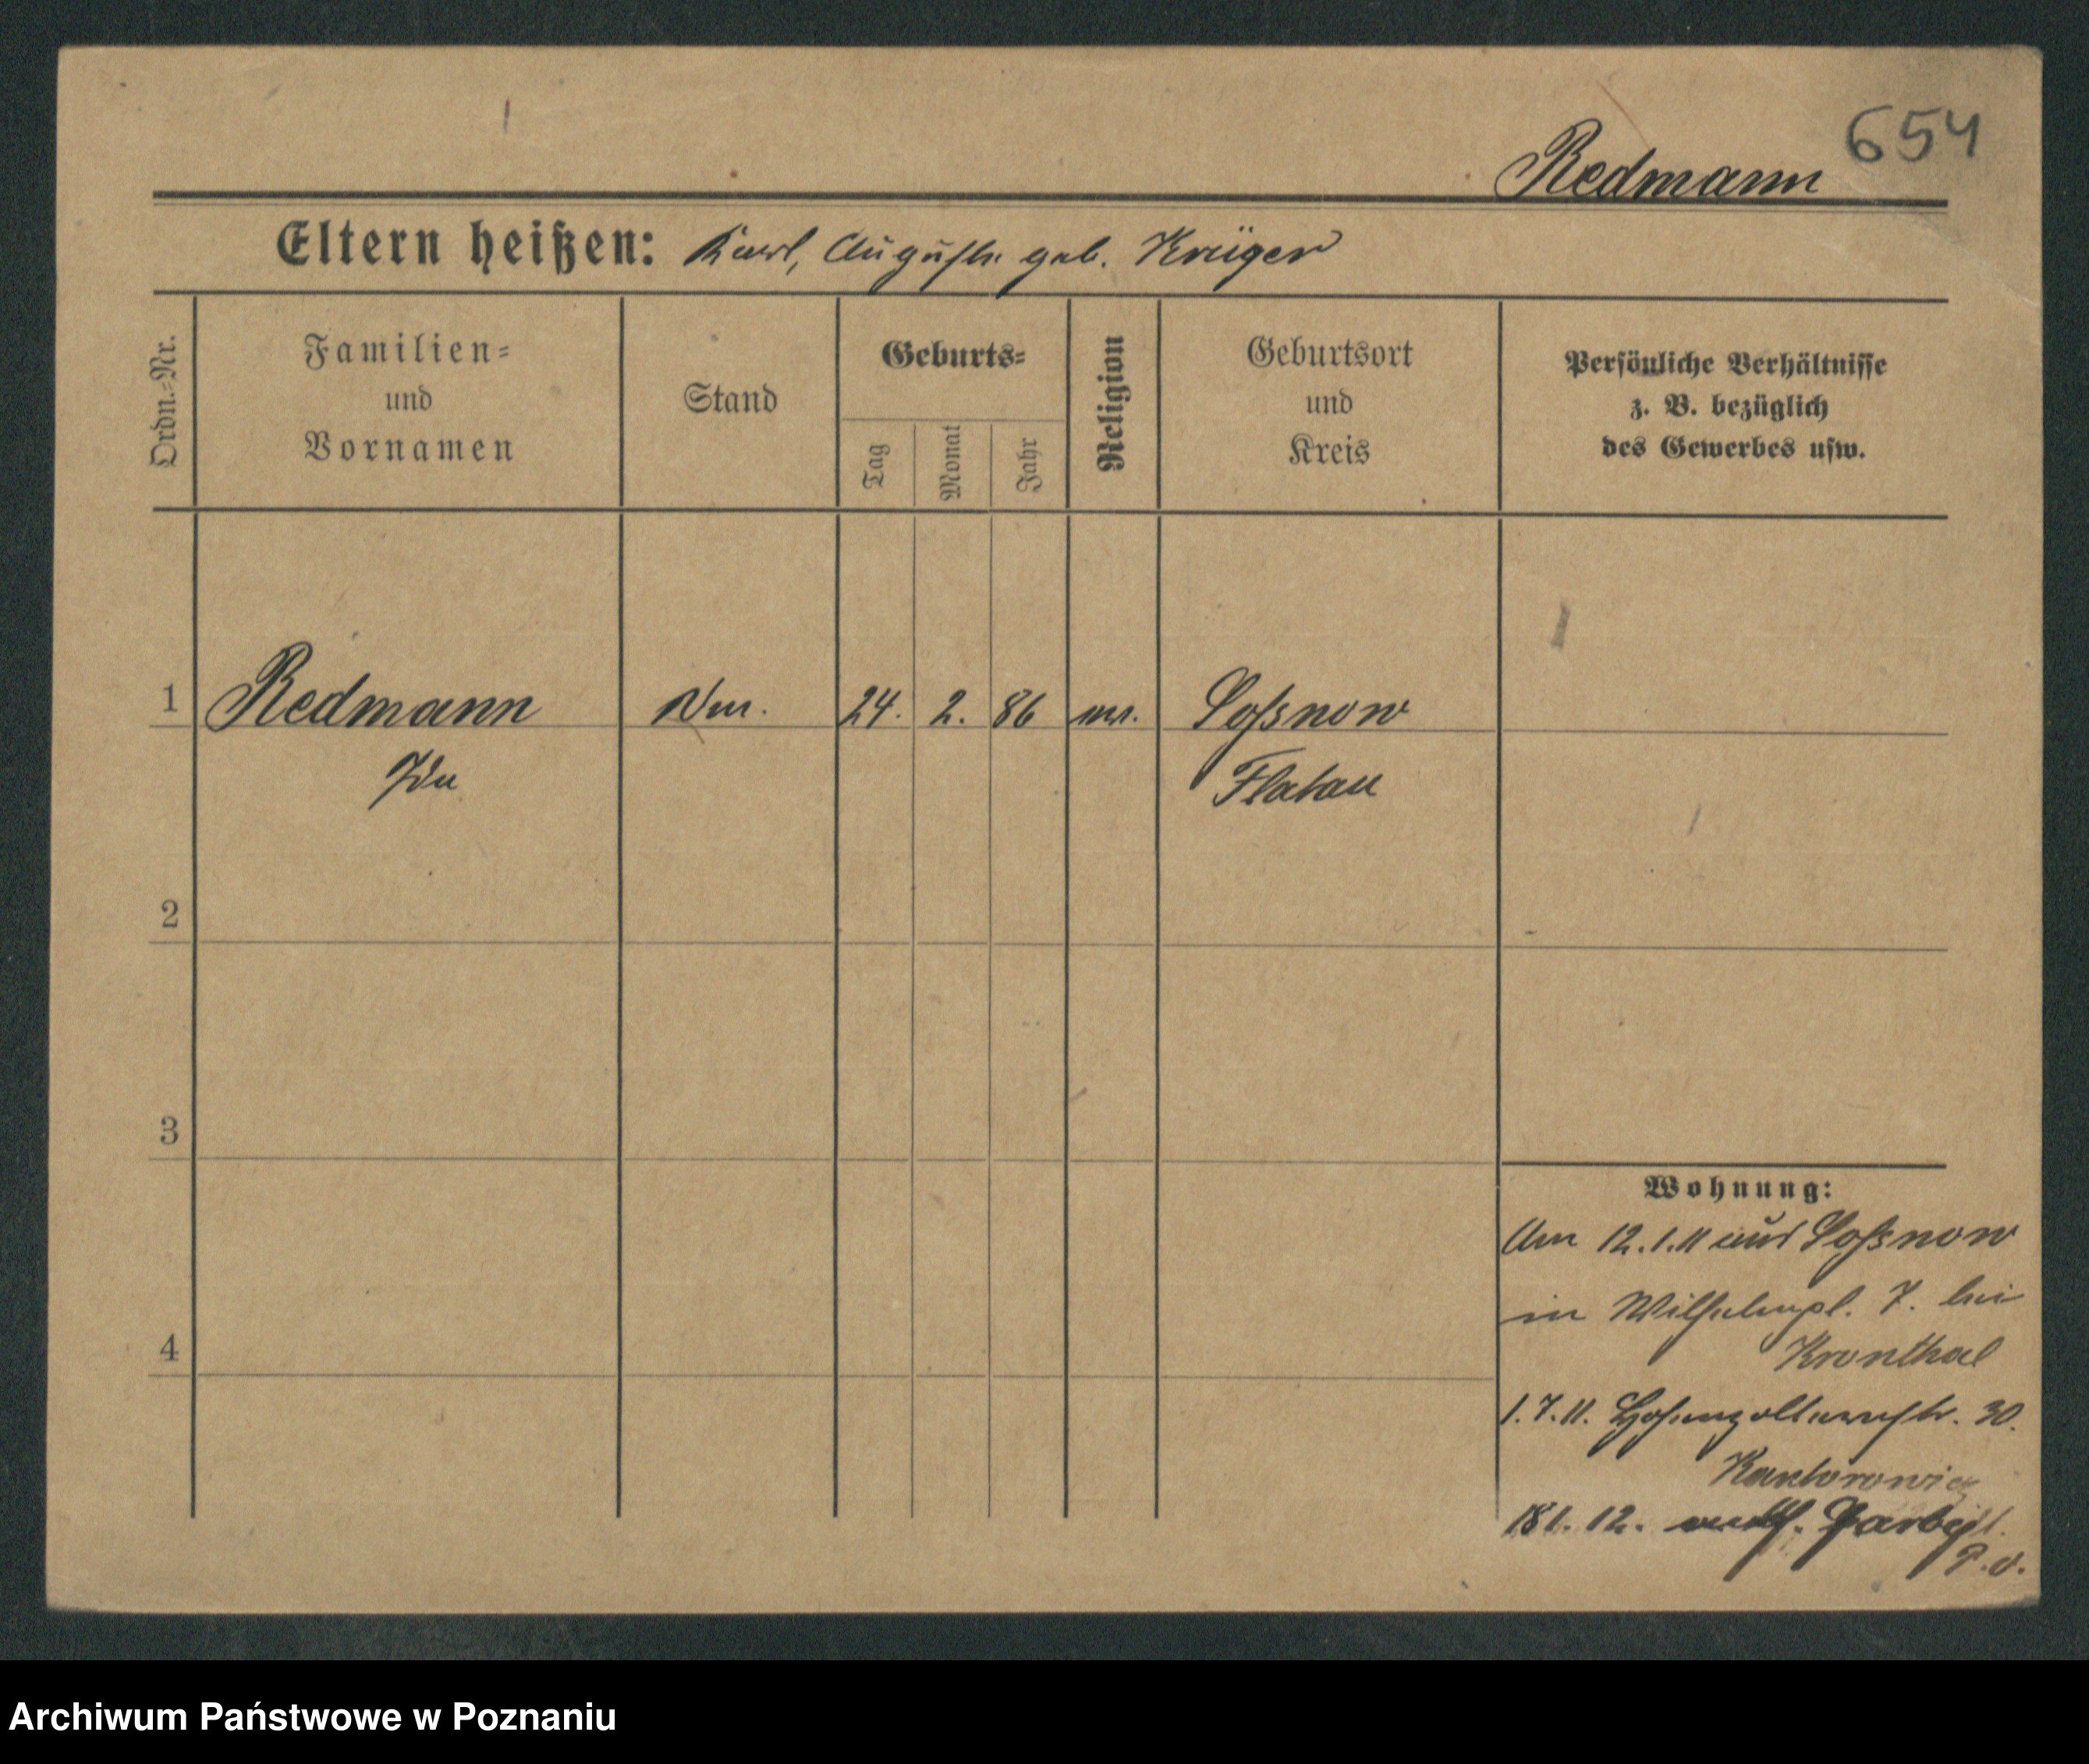 654
Redmann
Eltern heißen: Karl, Auguste geb. Krüger
Ordn.=Nr.
Familien=
und
Vornamen
Stand
Geburts=
Tag
Monat
Jahr
Religion
Geburtsort
und
Kreis
Persönliche Verhältnisse
z. B. bezüglich
des Gewerbes usw.
1 Redmann 24. 2. 86 Soßnow
Ida Flatau
2
3
4
Wohnung:
Am 12.1.11 aus Soßnow
in Wilhelmpl. 7. bei
Kronthal
1.7.11. Hohenzollernstr. 30.
Kantorowicz
18 1. 12.
Archiwum Państwowe w Poznaniu